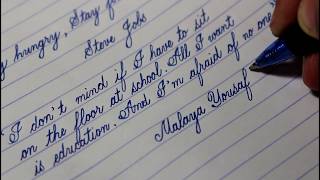 y hungry, Stay fo
Steve Jobs
"I don't mind if I have to sit
on the floor at school. All I want
is education. And I'm afraid of no one."
Malaya Yousaf